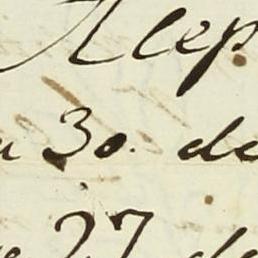 Alep
a 30. de
e 27 de